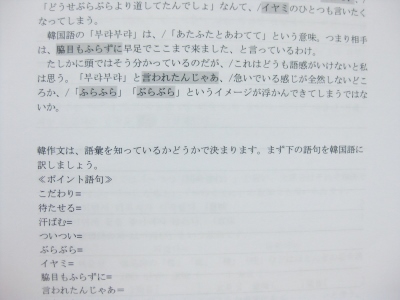 「どうせぶらぶらより道してたんでしょ」なんて、/イヤミのひとつも言いたく
なってしまう。
韓国語の「부랴부랴」は、/「あたふたとあわてて」という意味、つまり相手
は、脇目もふらずに早足でここまで来ました、と言っているわけ。
たしかに頭ではそう分かっているのだが、/これはどうも語感がいけないと私
は思う。「부랴부랴」と言われたんじゃあ、/急いでいる感じが全然しないどこ
ろか、/「ふらふら」「ぶらぶら」というイメージが浮かんできてしまうではな
いか。
韓作文は、語彙を知っているかどうかで決まります。まず下の語句を韓国語に
訳しましょう。
≪ポイント語句≫
こだわり=
待たせる=
汗ばむ=
ついつい=
ぶらぶら=
イヤミ=
脇目もふらずに=
言われたんじゃあ=